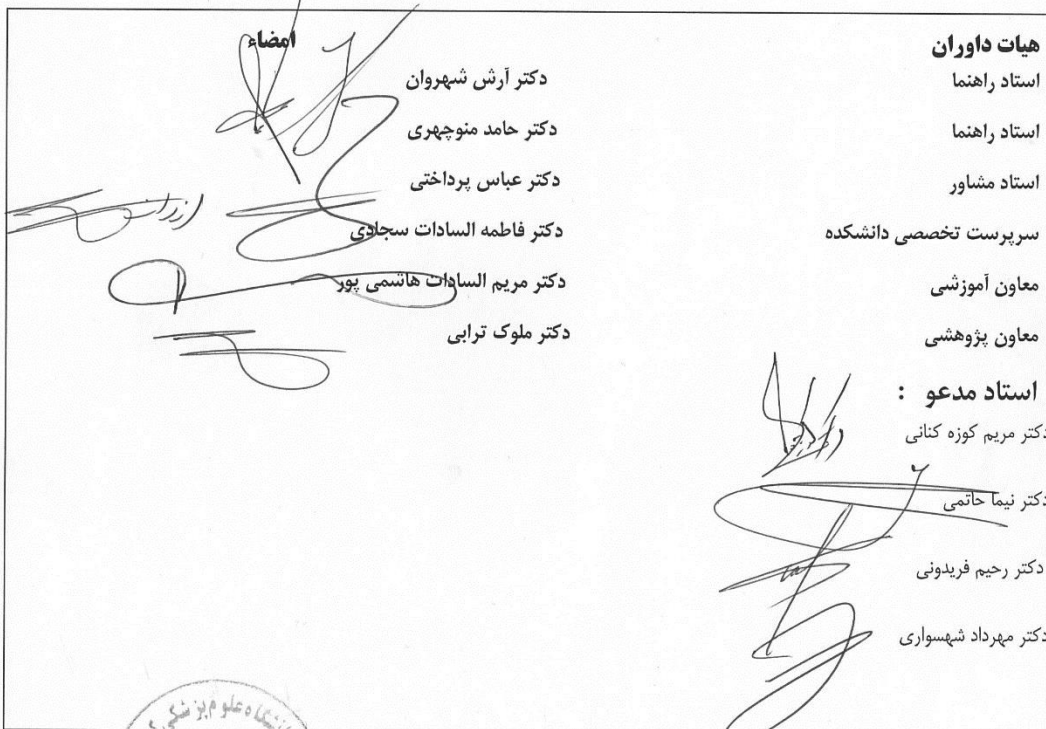 هیات داوران امضاء
استاد راهنما دکتر آرش شهروان
استاد راهنما دکتر حامد منوچهری
استاد مشاور دکتر عباس پرداختی
سرپرست تخصصی دانشکده دکتر فاطمه السادات سجادی
معاون آموزشی دکتر مریم السادات هاشمی پور
معاون پژوهشی دکتر ملوک ترابی
استاد مدعو :
دکتر مریم کوزه کنانی
دکتر نیما حاتمی
دکتر رحیم فریدونی
دکتر مهرداد شهسواری
علوم پزشکی